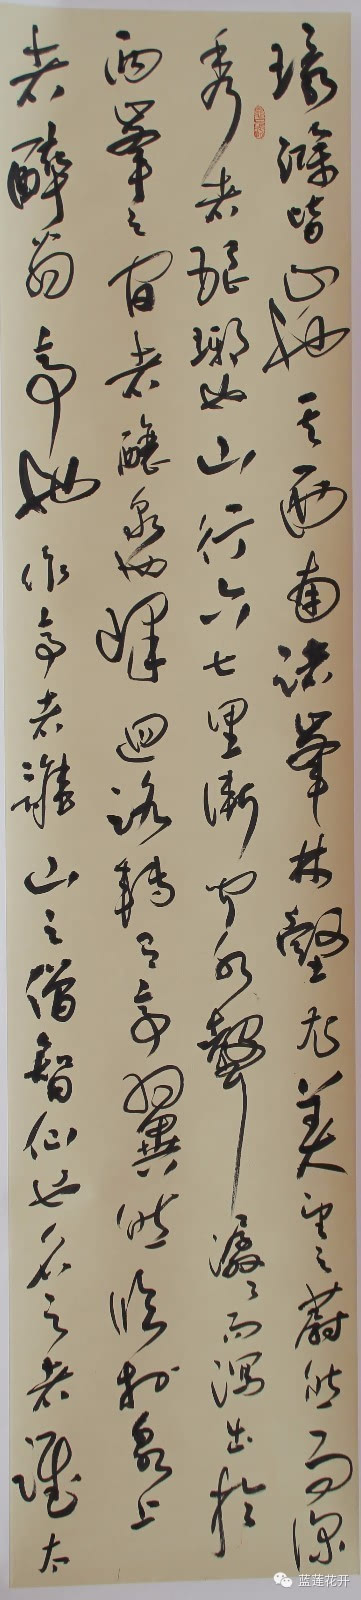 環滁皆山也其西南諸峯林壑尤美望之蔚然而深
秀者琅琊也山行六七里漸聞水聲潺々而瀉出於
兩峯之間者釀泉也峰迴路轉有亭翼然臨於泉上
者醉翁亭也作亭者誰山之僧智仙也名之者誰太
蓝莲花开